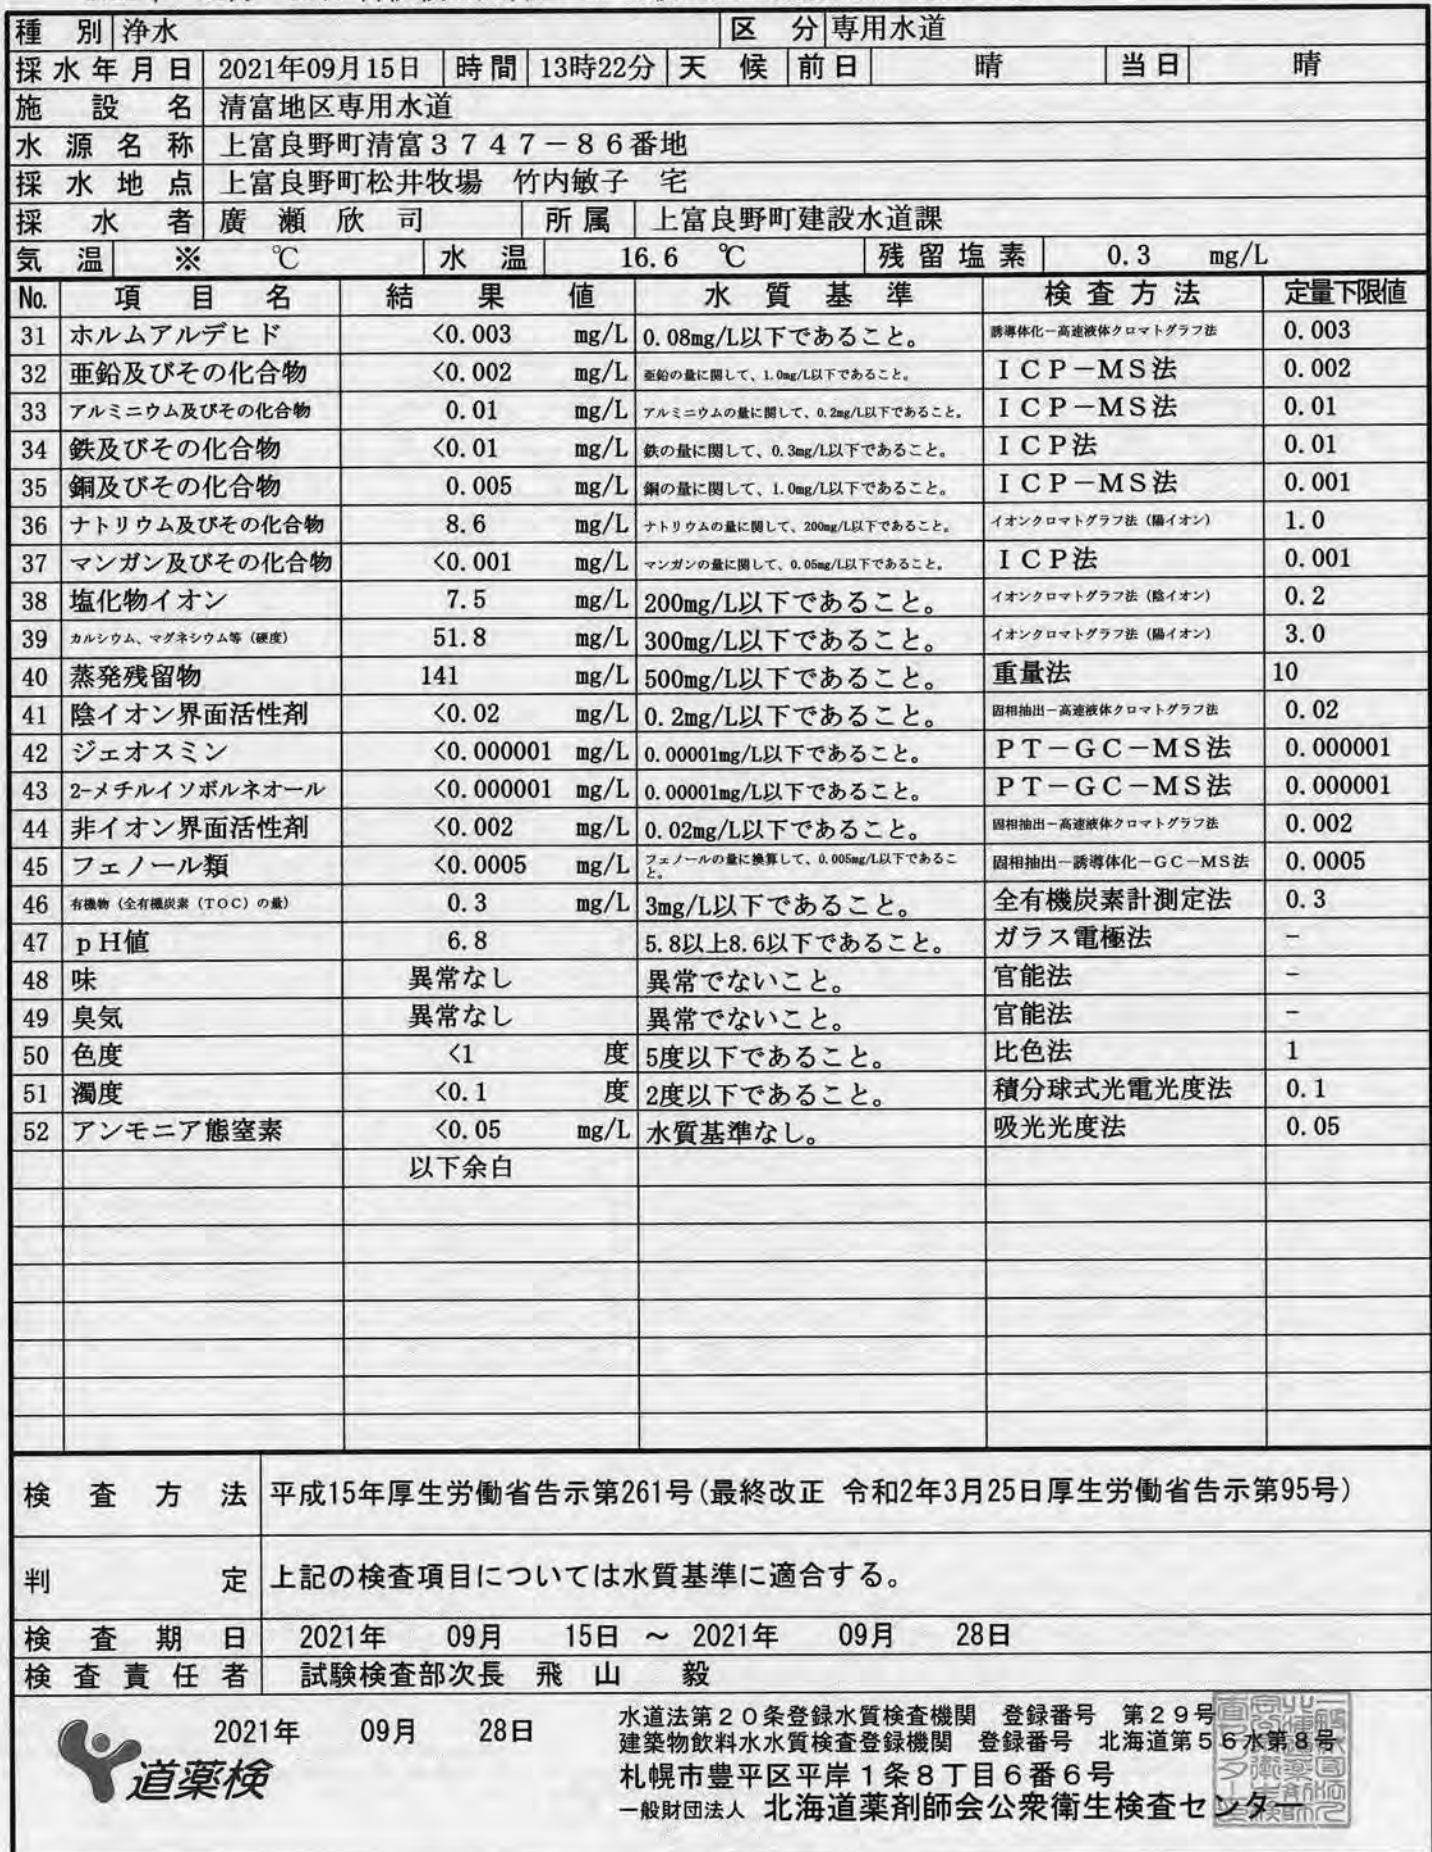 種 別 浄水 区 分 専用水道
採水年月日 2021年09月15日 時間 13時22分 天 候 前日 晴 当日 晴
施 設 名 清富地区専用水道
水 源 名 称 上富良野町清富3747-86番地
採 水 地 点 上富良野町松井牧場 竹内敏子 宅
採 水 者 廣 瀬 欣 司 所属 上富良野町建設水道課
気 温 ※ ℃ 水 温 16.6 ℃ 残留塩素 0.3 mg/L
No. 項 目 名 結 果 値 水 質 基 準 検査方法 定量下限値
31 ホルムアルデヒド <0.003 mg/L 0.08mg/L以下であること。 誘導体化-高速液体クロマトグラフ法 0.003
32 亜鉛及びその化合物 <0.002 mg/L 亜鉛の量に関して、1.0mg/L以下であること。 ICP-MS法 0.002
33 アルミニウム及びその化合物 0.01 mg/L アルミニウムの量に関して、0.2mg/L以下であること。 ICP-MS法 0.01
34 鉄及びその化合物 <0.01 mg/L 鉄の量に関して、0.3mg/L以下であること。 ICP法 0.01
35 銅及びその化合物 0.005 mg/L 銅の量に関して、1.0mg/L以下であること。 ICP-MS法 0.001
36 ナトリウム及びその化合物 8.6 mg/L ナトリウムの量に関して、200mg/L以下であること。 イオンクロマトグラフ法(陽イオン) 1.0
37 マンガン及びその化合物 <0.001 mg/L マンガンの量に関して、0.05mg/L以下であること。 ICP法 0.001
38 塩化物イオン 7.5 mg/L 200mg/L以下であること。 イオンクロマトグラフ法(陰イオン) 0.2
39 カルシウム、マグネシウム等(硬度) 51.8 mg/L 300mg/L以下であること。 イオンクロマトグラフ法(陽イオン) 3.0
40 蒸発残留物 141 mg/L 500mg/L以下であること。 重量法 10
41 陰イオン界面活性剤 <0.02 mg/L 0.2mg/L以下であること。 固相抽出-高速液体クロマトグラフ法 0.02
42 ジェオスミン <0.000001 mg/L 0.00001mg/L以下であること。 PT-GC-MS法 0.000001
43 2-メチルイソボルネオール <0.000001 mg/L 0.00001mg/L以下であること。 PT-GC-MS法 0.000001
44 非イオン界面活性剤 <0.002 mg/L 0.02mg/L以下であること。 固相抽出-高速液体クロマトグラフ法 0.002
45 フェノール類 <0.0005 mg/L フェノールの量に換算して、0.005mg/L以下であること。 固相抽出-誘導体化-GC-MS法 0.0005
46 有機物(全有機炭素(TOC)の量) 0.3 mg/L 3mg/L以下であること。 全有機炭素計測定法 0.3
47 pH値 6.8 5.8以上8.6以下であること。 ガラス電極法 -
48 味 異常なし 異常でないこと。 官能法 -
49 臭気 異常なし 異常でないこと。 官能法 -
50 色度 <1 度 5度以下であること。 比色法 1
51 濁度 <0.1 度 2度以下であること。 積分球式光電光度法 0.1
52 アンモニア態窒素 <0.05 mg/L 水質基準なし。 吸光光度法 0.05
以下余白
検 査 方 法 平成15年厚生労働省告示第261号(最終改正 令和2年3月25日厚生労働省告示第95号)
判 定 上記の検査項目については水質基準に適合する。
検 査 期 日 2021年 09月 15日 ~ 2021年 09月 28日
検 査 責 任 者 試験検査部次長 飛 山 毅
2021年 09月 28日
道薬検
水道法第20条登録水質検査機関 登録番号 第29号
建築物飲料水水質検査登録機関 登録番号 北海道第56水第8号
札幌市豊平区平岸1条8丁目6番6号
一般財団法人 北海道薬剤師会公衆衛生検査センター